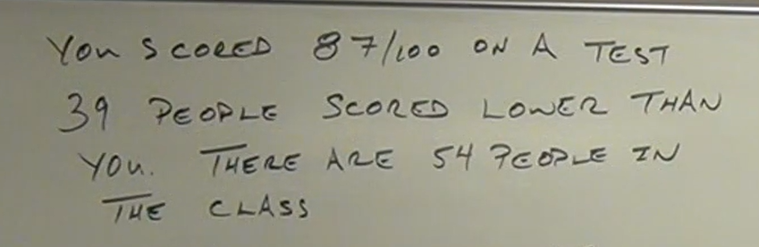 YOU SCORED 87/100 ON A TEST
39 PEOPLE SCORED LOWER THAN
YOU. THERE ARE 54 PEOPLE IN
THE CLASS